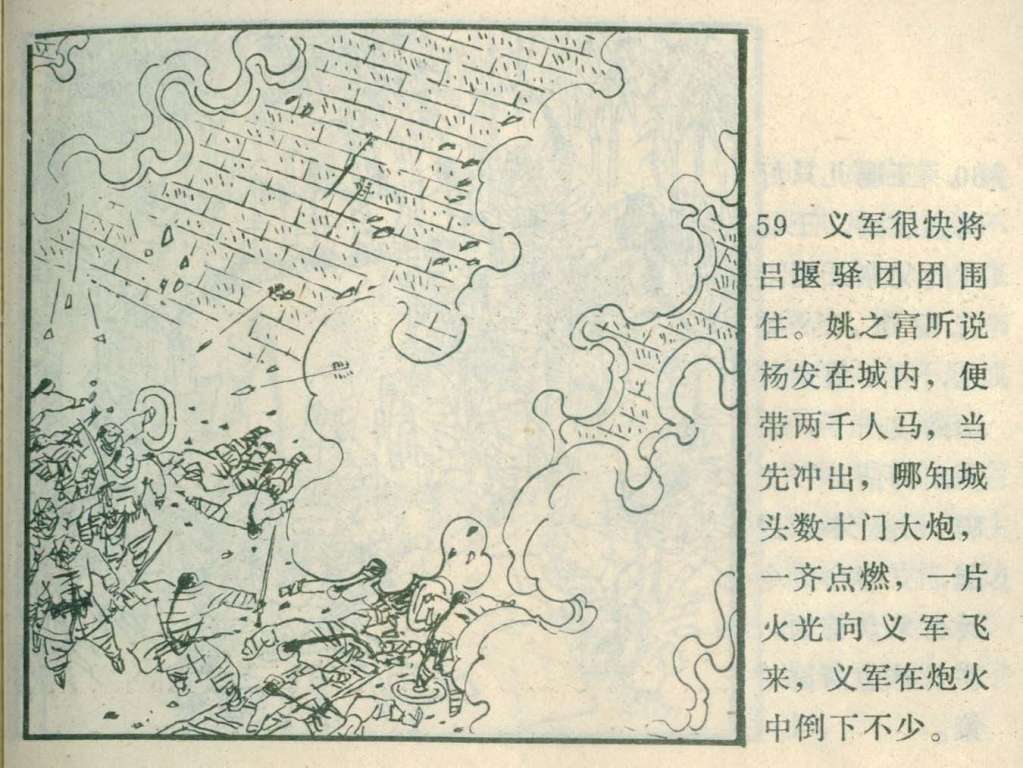 59 义军很快将
吕堰驿团团围
住。姚之富听说
杨发在城内，便
带两千人马，当
先冲出，哪知城
头数十门大炮，
一齐点燃，一片
火光向义军飞
来，义军在炮火
中倒下不少。